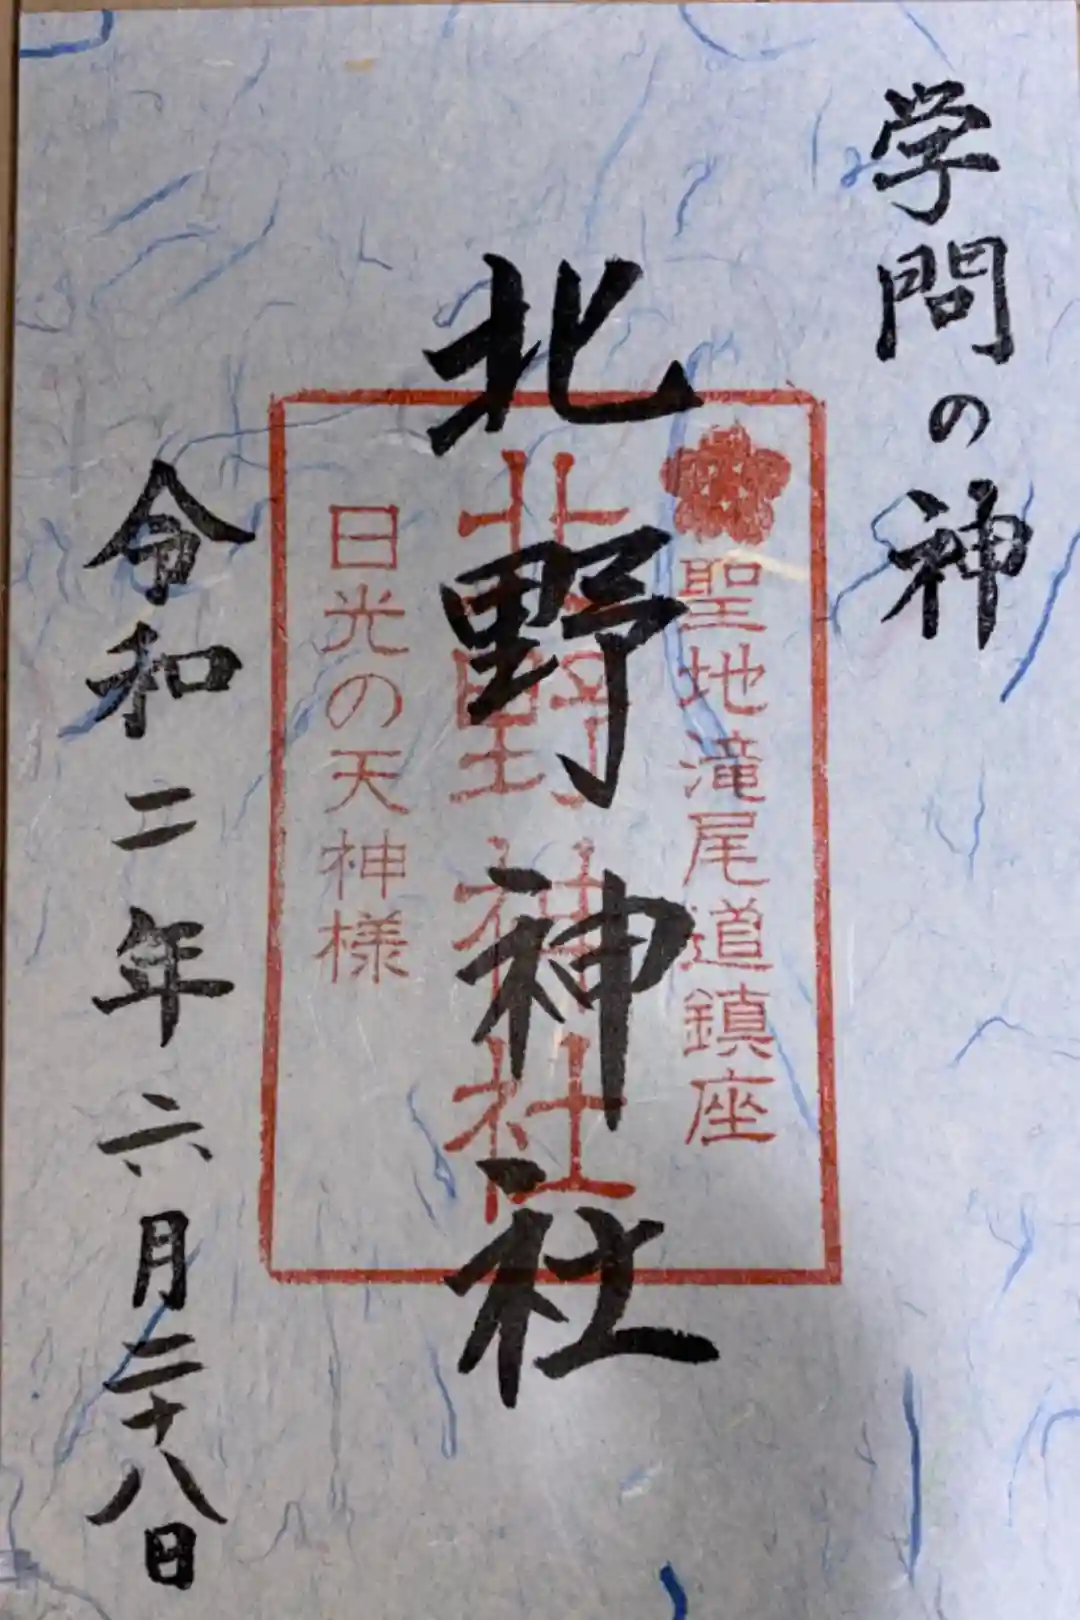 学問の神
聖地滝尾道鎮座
北野神社
北野神社
日光の天神様
令和二年六月二十八日